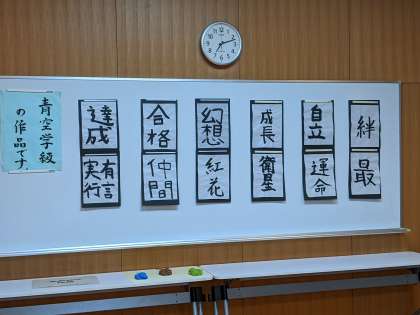 青空学級
の作品です。
絆
最
自立
運命
成長
衛星
幻想
紅花
合格
仲間
達成
有言
実行